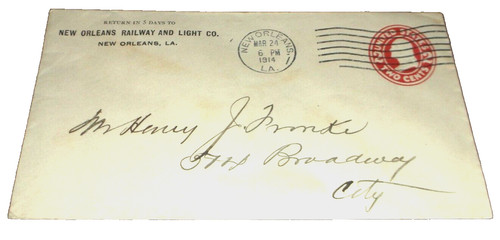 RETURN IN 5 DAYS TO
NEW ORLEANS RAILWAY AND LIGHT CO.
NEW ORLEANS, LA.
NEW ORLEANS,
MAR 24
6 PM
1914
LA.
UNITED STATES
TWO CENTS
Mr Henry J.
Broadway
City